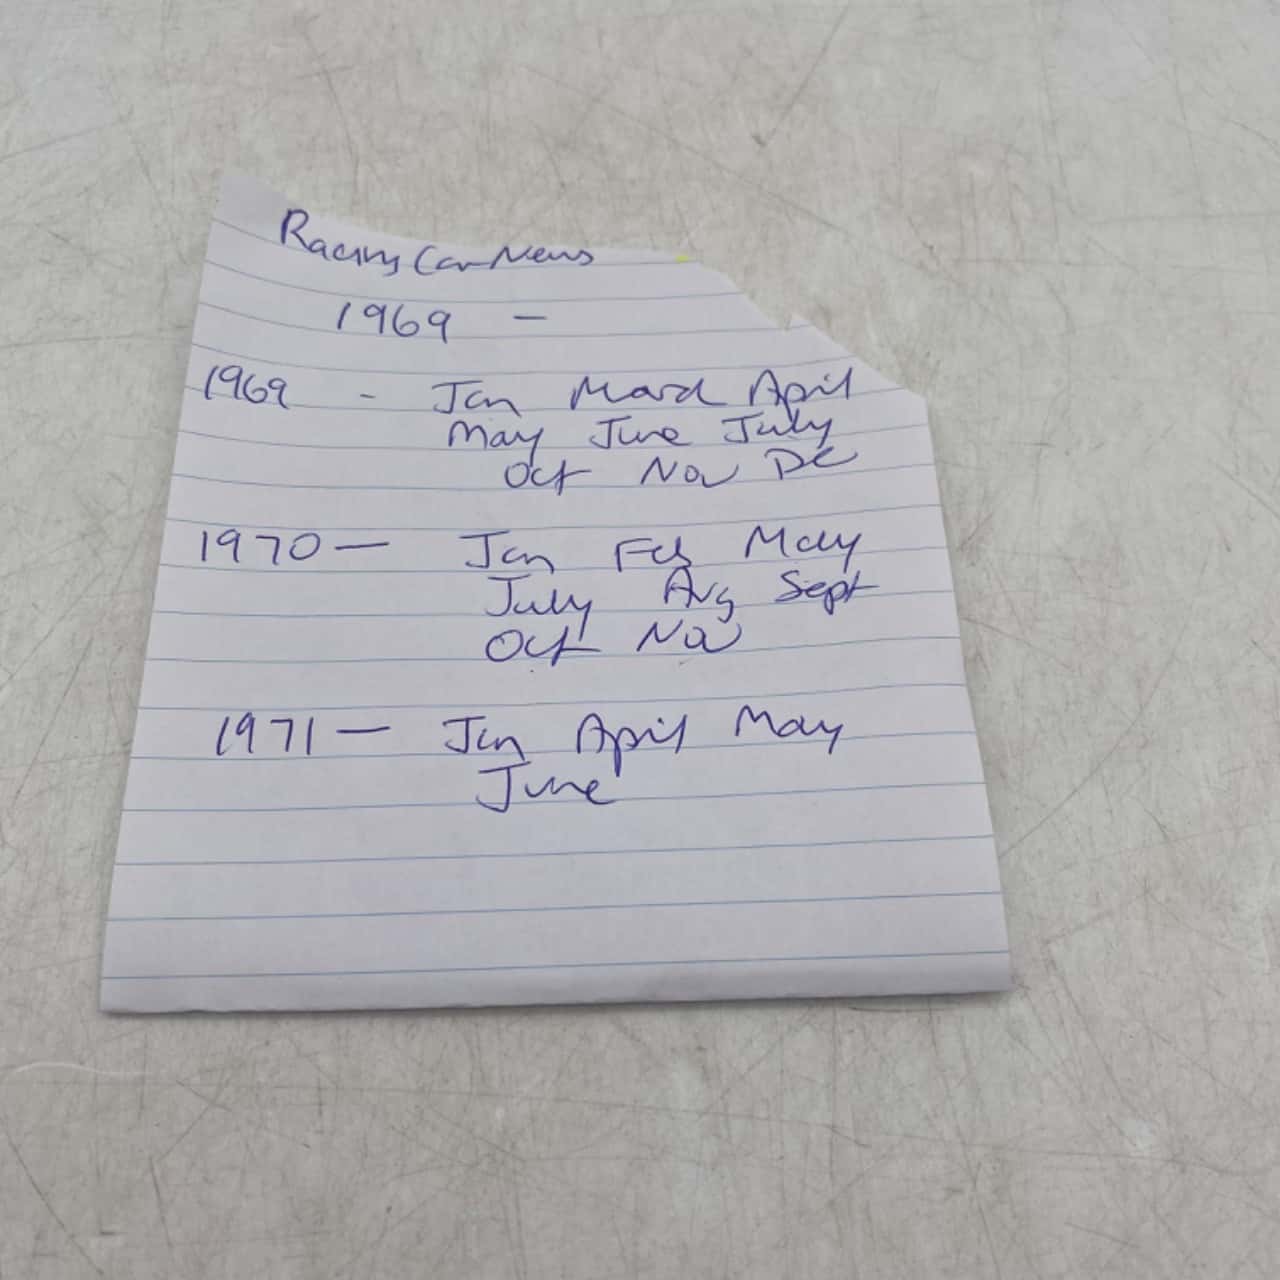 Racing Car News
1969 -
1969 - Jan March April
May June July
Oct Nov Dec
1970 - Jan Feb May
July Aug Sept
Oct Nov
1971 - Jan April May
June